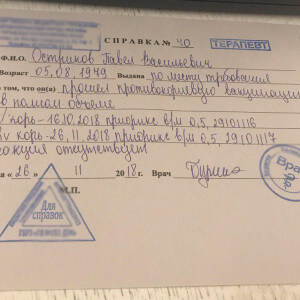 СПРАВКА № 40
ТЕРАПЕВТ
Ф.И.О. Остриков Павел Василевич
Возраст 05.08.1979 Выдана по месту требования
том, что он(а) прошел противокоревую вакцинацию
в полном объеме
корь - 16.10.2018 приорикс в/м 0,5, 29101116
корь - 26.11.2018 приорикс в/м 0,5, 29101117
отсутствует
« 26 » 11 2018г. Врач
М.П.
Для
справок
Врач